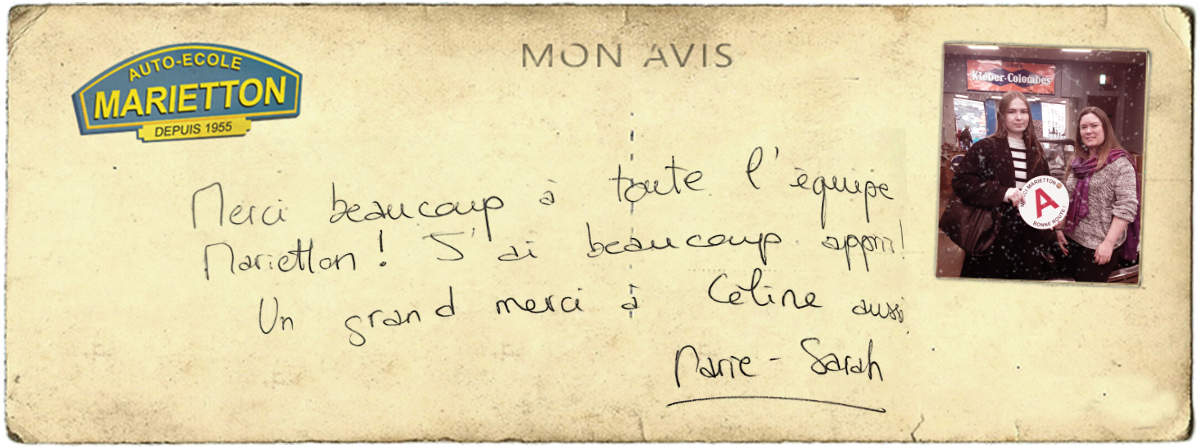 AUTO-ECOLE
MARIETTON
DEPUIS 1955
MON AVIS
Kléber-Colombes
MERCI MARIETTON
A
BONNE ROUTE
Merci beaucoup à toute l'équipe
Marietton ! J'ai beaucoup appris!
Un grand merci à Céline aussi.
Marie-Sarah